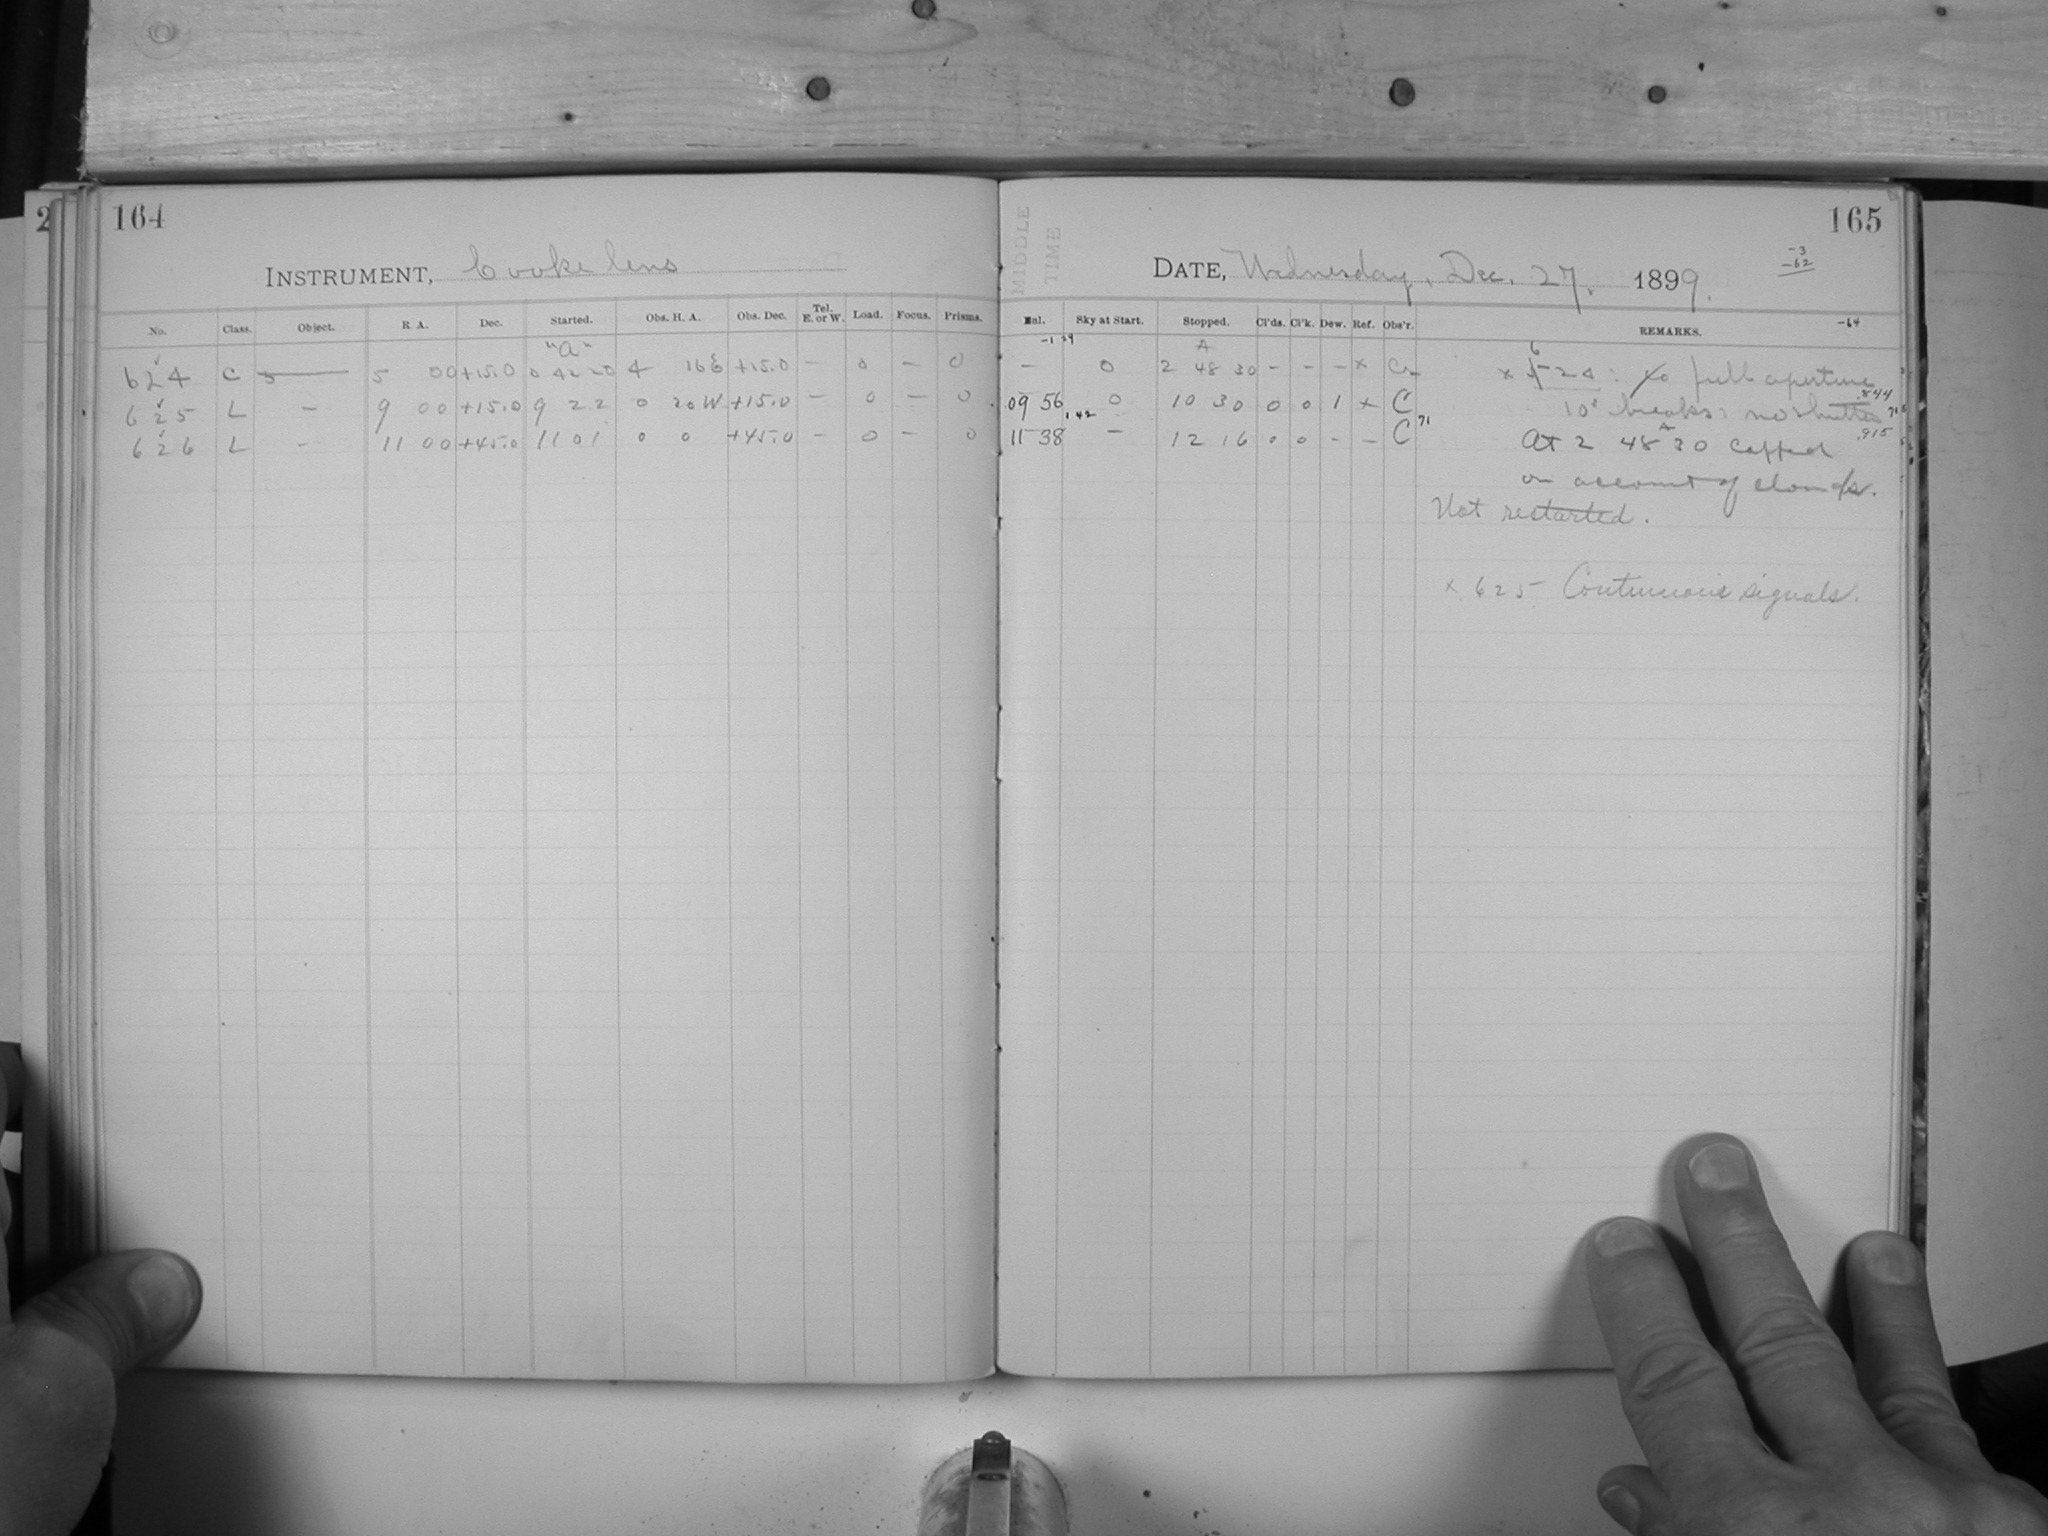 2
164
INSTRUMENT, Cooke lens
No. Class. Object. R. A. Dec. Started. Obs. H. A. Obs. Dec. Tel. E. or W. Load. Focus. Prisms.
"a"
624 C 5 00 +15.0 0 42 20 4 16 E +15.0 – 0 – 0
625 L – 9 00 +15.0 9 22 0 20 W +15.0 – 0 – 0
626 L – 11 00 +45.0 11 01 0 0 +45.0 – 0 – 0
MIDDLE TIME
165
DATE, Wednesday, Dec. 27. 1899.
-3
-62
-64
Sky at Start. Stopped. Cl'ds. Cl'k. Dew. Ref. Obs'r. REMARKS.
-1 29
A
– 0 2 48 30 – – – x x 624: full aperture
.844
09 56 0 10 30 0 0 1 x C 10s breaks: no shutter
1.42 71 .915
11 38 – 12 16 0 0 – – C At 2 48 30 capped
on account of clouds.
Not restarted.
x 625 Continuous signals.